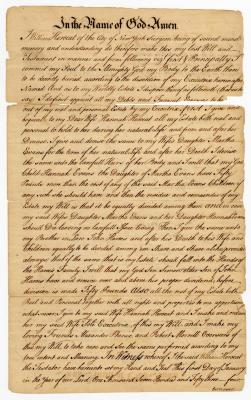 In the Name of God Amen.
I William Horseat of the City of New York Surgeon being of sound mind
memory and understanding do therefore make this my last Will and
Testament in manner and form following viz: first & Principally I
commend my Soul to the Almighty God my Body to the Earth there
to be decently buried according to the discretion of my Executrix hereinafter
Named And as to my Worldly Estate I dispose thereof as followeth That is to
say I desire all my Debts and Funeral Charges to be
out of my real and personal Estate by my Executrix
bequeath to my Dear Wife Hannah all my Estate both real and
personal to hold to her during her natural life and from and after her
Decease I give and devise the same to my Wifes Daughter Martha
Evans for the term of her natural life and after her Death I devise
the same unto the lawfull Heirs of her Body and I will that my God
Child Hannah Evans the Daughter of Martha Evans have Fifty
Pounds more than the rest if any of the said Martha Evans Children
any such she should have and then the residue and remainder of my
Estate my Will is that it be equally divided among them
my said Wifes Daughter Martha Evans and her Daughter Hannah Evans
Should Die leaving no Lawfull Issue living Then I give the same unto
my Brother in Law John Harris and after his Death to his Wife and
Children equally to be divided among them and them
always that if the same that is my Estate should fall into the Hands of
the Harris Family I will that my God Son Simon elder Son of John
Harris have and receive over and above his proper dividend before
devised as such Fifty Pounds after all the rest of my Estate both
Real and Personal Together with all right and properties to me appertaining
what soever I give to my said Wife Hannah Horseat and I make and ordain
her my said Wife Sole Executrix of this my Will, and I make my
loving Friends Alexander Pierce and Robert Merrell Overseers of
this my Will, to take care and see the same performed according to my
true intent and Meaning. In Witness whereof I the said William Horseat
the Testator have hereunto set my Hand and Seal This first Day of January
in the Year of our Lord One Thousand Seven Hundred and Fifty three